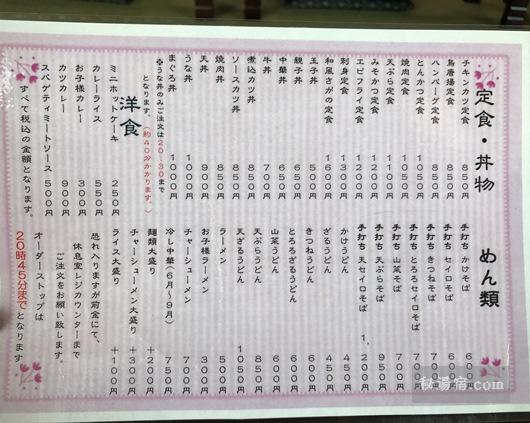 定食・丼物
チキンカツ定食 850円
鳥唐揚定食 850円
ハンバーグ定食
とんかつ定食
焼肉定食 1050円
天ぷら定食 1100円
みそかつ定食 1200円
エビフライ定食 1200円
刺身定食 1300円
和風さがの定食 1600円
玉子丼 500円
親子丼 650円
中華丼 650円
牛丼 700円
煮込カツ丼 850円
ソースカツ丼 850円
焼肉丼 850円
天丼 900円
うな丼 1000円
まぐろ丼 1000円
※うな丼のみご注文は20:30まで
となります。(約40分かかります。)
洋食
ミニホットケーキ 250円
カレーライス 550円
お子様カレー 300円
カツカレー 900円
スパゲティミートソース 500円
すべて税込の金額となります。
めん類
手打ち かけそば
手打ち セイロそば
手打ち きつねそば
手打ち とろろセイロそば
手打ち 山菜そば
手打ち 天ぷらそば 950円
手打ち 天セイロそば
かけうどん 450円
ざるうどん 450円
きつねうどん 600円
とろろざるうどん 600円
山菜うどん 600円
天ぷらうどん 850円
天ざるうどん 1050円
ラーメン 500円
お子様ラーメン 300円
チャーシューメン 700円
冷し中華(6月~9月) 750円
麺類大盛り +200円
チャーシューメン大盛り +300円
ライス大盛り +100円
恐れ入りますが前金にて、
休息室レジカウンターまで
ご注文をお願い致します。
オーダーストップは
20時45分までとなります
秘易宿.com